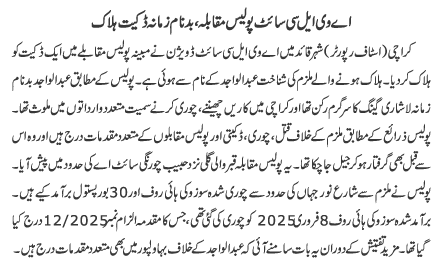 اے وی ایل سی سائٹ پولیس مقابلہ، بدنام زمانہ ڈکیت ہلاک
کراچی (اسٹاف رپورٹر) شہر قائد میں اے وی ایل سی سائٹ ڈویژن نے مبینہ پولیس مقابلے میں ایک ڈکیت کو
ہلاک کر دیا۔ ہلاک ہونے والے ملزم کی شناخت عبدالواجد کے نام سے ہوئی ہے۔ پولیس کے مطابق عبدالواجد بدنام
زمانہ لاشاری گینگ کا سرگرم رکن تھا اور کراچی میں کاریں چھیننے، چوری کرنے سمیت متعدد وارداتوں میں ملوث تھا۔
پولیس ذرائع کے مطابق ملزم کے خلاف قتل، چوری، ڈکیتی اور پولیس مقابلوں کے متعدد مقدمات درج ہیں اور وہ اس
سے قبل بھی گرفتار ہو کر جیل جا چکا تھا۔ یہ پولیس مقابلہ قبر والی گلی نزد حبیب چورنگی سائٹ اے کی حدود میں پیش آیا۔
پولیس نے ملزم سے شارع نور جہاں کی حدود سے چوری شدہ سوزوکی ہائی روف اور 30 بور پستول برآمد کیے ہیں۔
برآمد شدہ سوزوکی ہائی روف 8 فروری 2025 کو چوری کی گئی تھی، جس کا مقدمہ الزام نمبر 12/2025 درج کیا
گیا تھا۔ مزید تفتیش کے دوران یہ بات سامنے آئی کہ عبدالواجد کے خلاف بہاولپور میں بھی متعدد مقدمات درج ہیں۔